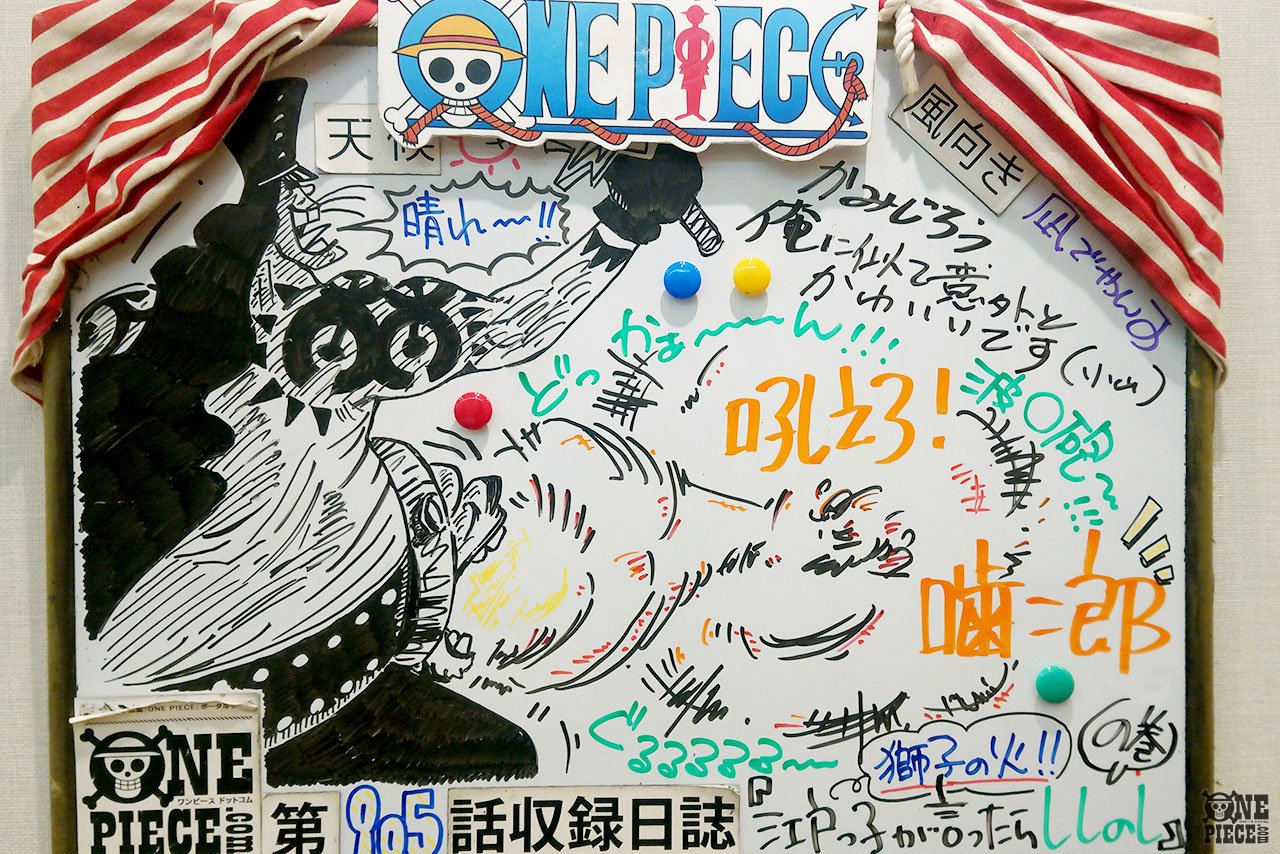 ONE PIECE
天候
晴れ〜!!
風向き
凪でやんす
かみじろう
俺に似て意外と
かわいいです(小山)
どっ
かぁ〜〜〜ん!!!
波〇砲〜
吼えろ!
噛二郎
の巻
ぐるるるるる〜
獅子の火!!
『江戸っ子が言ったらししのし』
「ONE PIECE」ポータル
ONE
ワンピース ドットコム
PIECE.com
第805話収録日誌
ONE
ワンピース ドットコム
PIECE.com